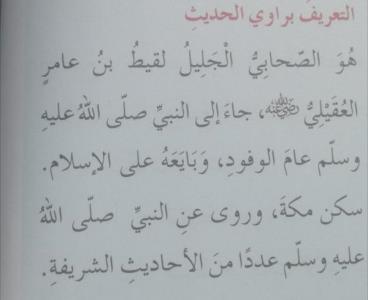 التعريف براوي الحديثِ
هُوَ الصّحابيُّ الْجَلِيلُ لقيطُ بنُ عامرٍ
العُقَيْلِيُّ رضي الله عنه، جاءَ إلى النبيِّ صلّى اللهُ عليهِ
وسلّم عامَ الوفودِ، وَبَايَعَهُ على الإسلام.
سكن مكةَ، وروى عنِ النبيِّ صلّى اللهُ
عليهِ وسلّم عددًا منَ الأحاديثِ الشريفةِ.